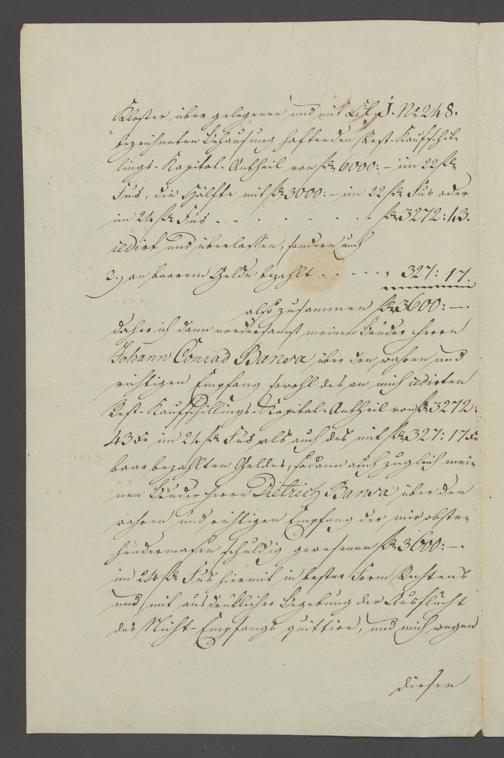 Kloster über gelegenen und mit Lit. J. No 248.
bezeichneten Behausung haftenden Rest-Kaufschil-
lings-Kapital-Antheil von f 6000:– im 22 f
Fus, die Hälfte mit f 3000:– im 22 f Fus oder
im 24 f Fus . . . . . . f 3272:43.
cedirt und überlassen, sondern auch
2.) an baarem Gelde bezahlt . . . . 327:17.
also zusammen f 3600:–.
daher ich dann vordersamst meinen Bruder Herrn
Johann Conrad Bansa über den wahren und
richtigen Empfang sowohl des an mich cedirten
Rest-Kaufschillings-Kapital-Antheil von f 3272:
43 im 24 f Fus als auch des mit f 327:17
baar bezahlten Geldes, sodann auch zugleich mei-
nen Bruder Herrn Dietrich Bansa über den
wahren und richtigen Empfang der mir obste-
hendermasen schuldig gewesenen f 3600:–.
im 24 f Fus hiermit in bester Form Rechtens
und mit ausdrücklicher Begebung der Ausflucht
des Nicht-Empfangs quittire, und mich wegen
diesen